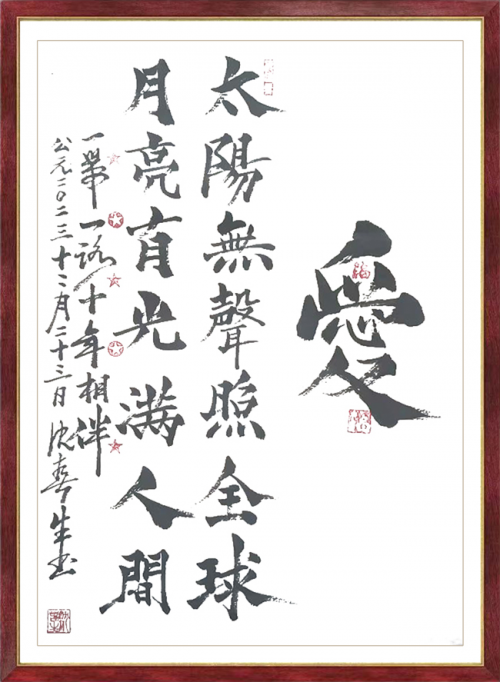 愛
太陽無聲照全球
月亮有光满人間
一帶一路十年相伴
公元二〇二三十二月二十三日沈喜生書
福